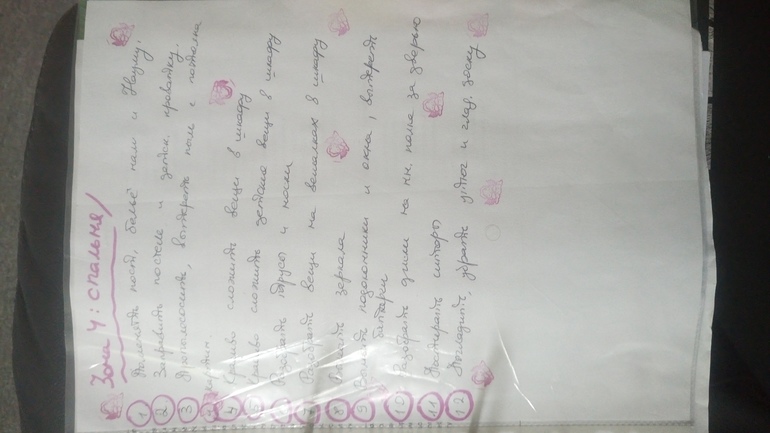 Зона 4: спальня
1 Поменять пост. бельё нам и Науму.
2 Заправить постели и детск. кроватку.
3 Пропылесосить, вытереть пыль с потолка
4 Красиво сложить вещи в шкафу
5 Красиво сложить детские вещи в шкафу
6 Разобрать трусы и носки
7 Разобрать вещи на вешалках в шкафу
8 зеркала
9 подоконники и окна, вытереть
батареи
10 Разобрать на кн. полке за дверью
11 Постирать шторы
12 Погладить, убрать утюг и глад. доску